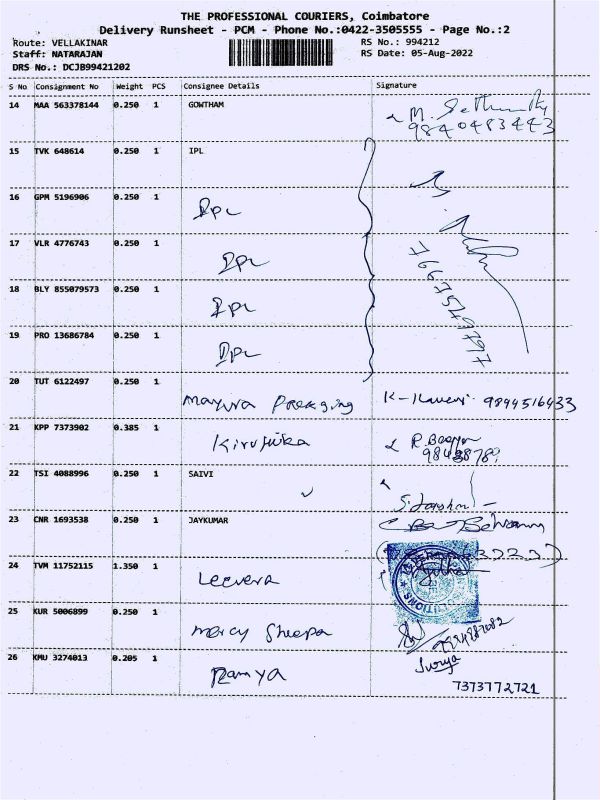 THE PROFESSIONAL COURIERS, Coimbatore
Delivery Runsheet - PCM - Phone No.:0422-3505555 - Page No.:2
Route: VELLAKINAR RS No.: 994212
Staff: NATARAJAN RS Date: 05-Aug-2022
DRS No.: DCJB99421202
S No Consignment No Weight PCS Consignee Details Signature
14 MAA 563378144 0.250 1 GOWTHAM
9840483443
15 TVK 648614 0.250 1 IPL
16 GPM 5196906 0.250 1
Ipl
17 VLR 4776743 0.250 1
Ipl
18 BLY 855079573 0.250 1
Ipl
19 PRO 13686784 0.250 1
Ipl
20 TUT 6122497 0.250 1
9894516433
21 KPP 7373902 0.385 1
Kirufika
22 TSI 4088996 0.250 1 SAIVI
23 CNR 1693538 0.250 1 JAYKUMAR
24 TVM 11752115 1.350 1
Leevera
25 KUR 5006899 0.250 1
Mercy Sheepa
26 KMU 3274013 0.205 1
Ramya Surya
7373772721